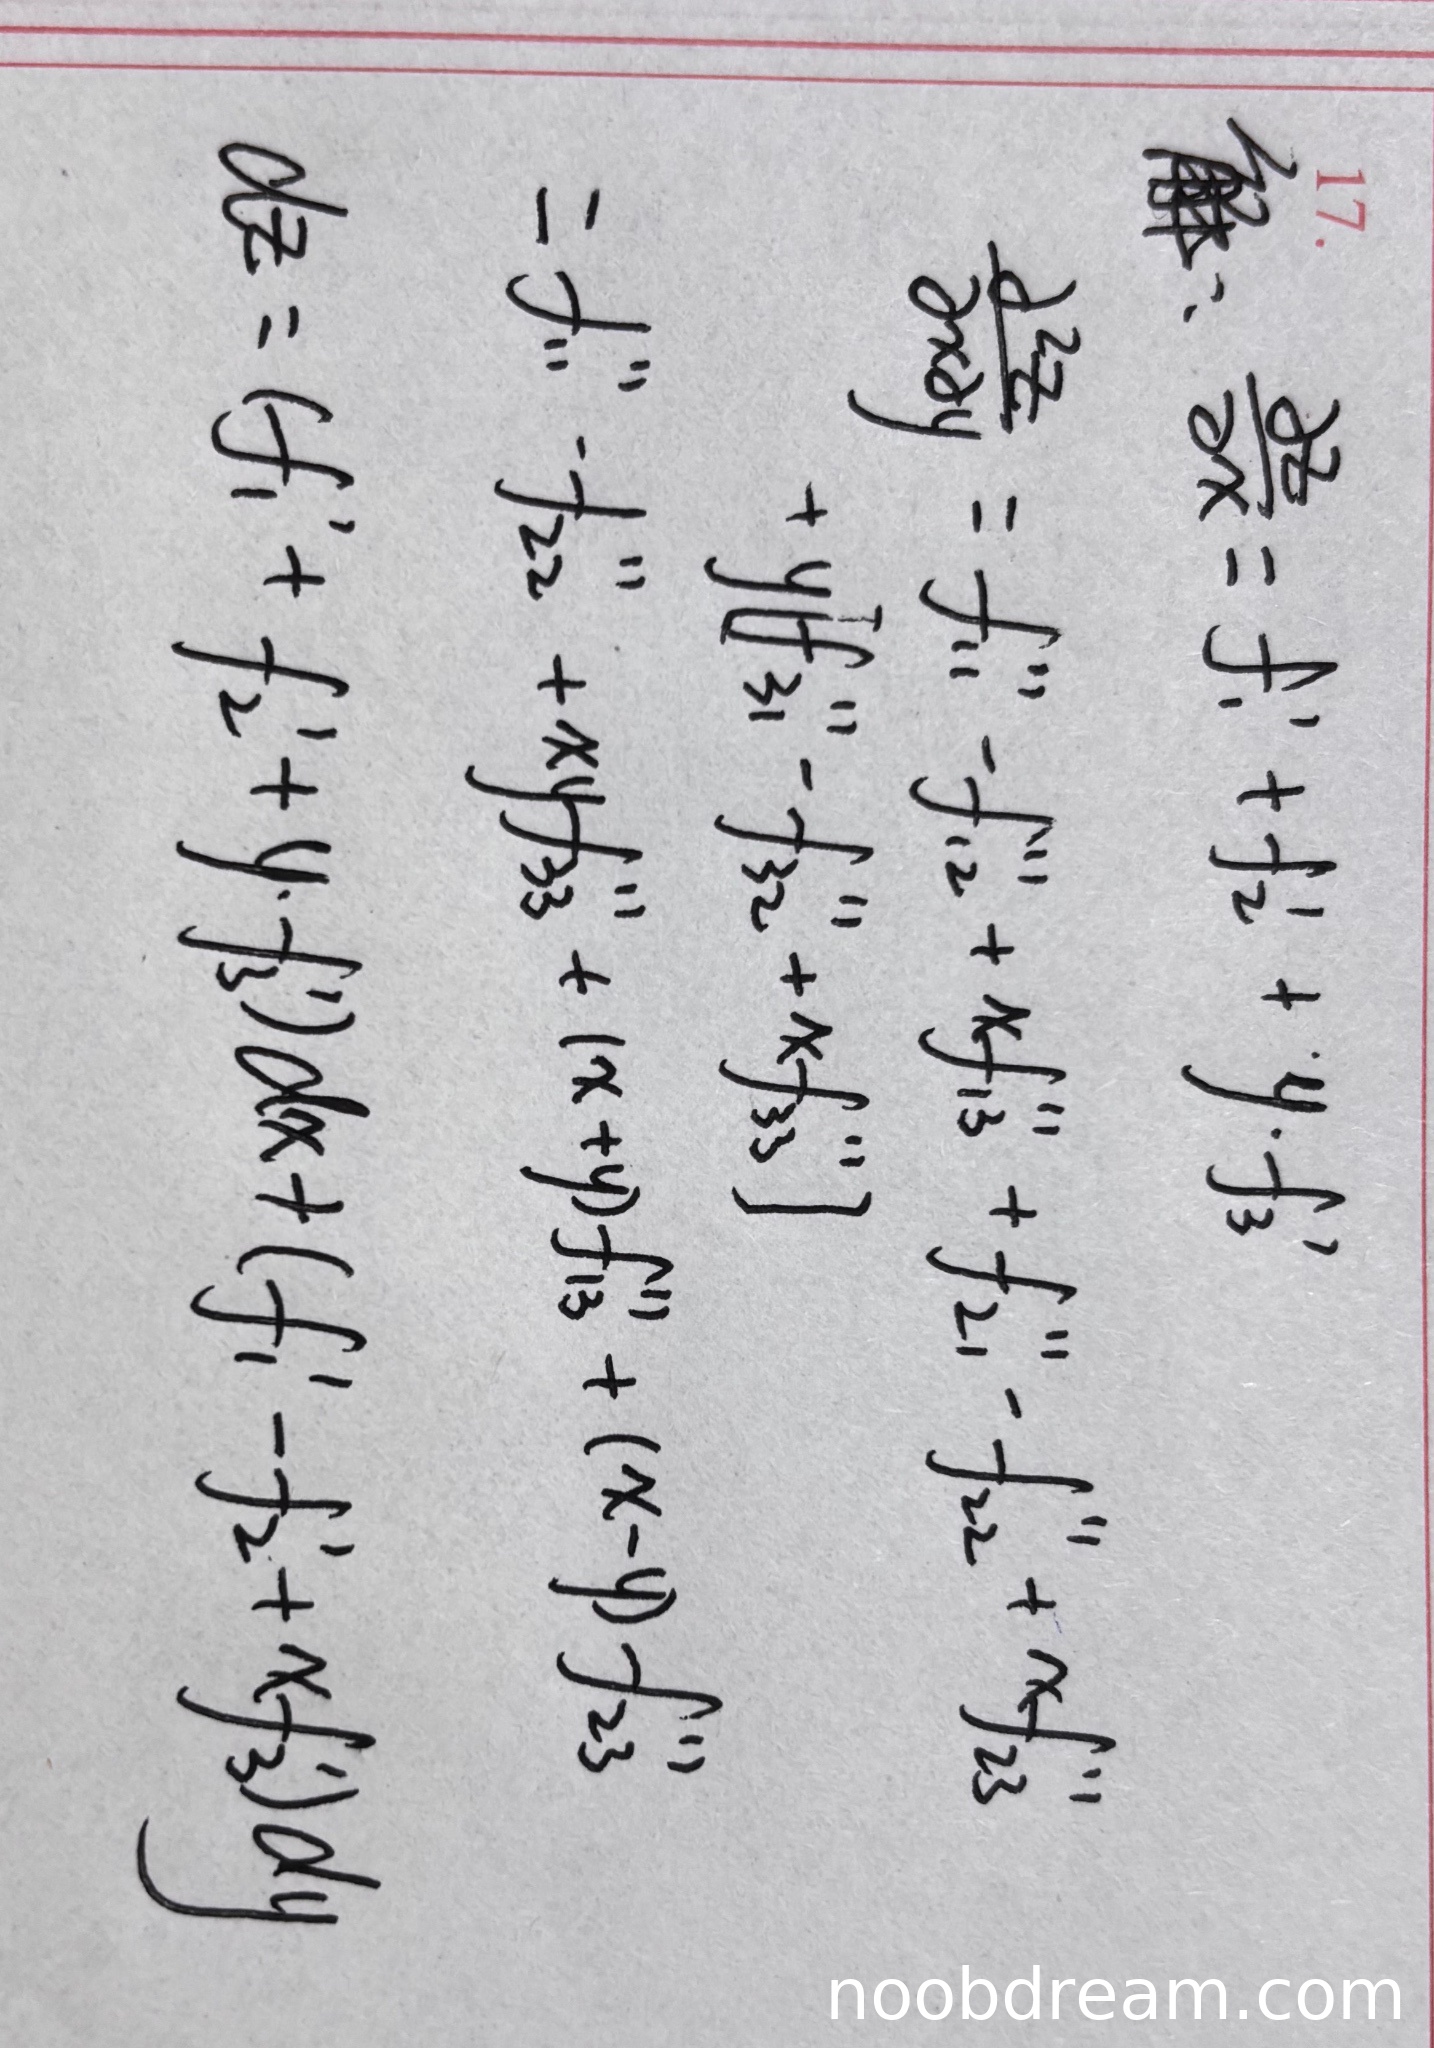 17.
解: ∂z/∂x = f₁' + f₂' + y·f₃'
∂²z/∂x∂y = f₁₁'' - f₁₂'' + xf₁₃'' + f₂₁'' - f₂₂'' + xf₂₃''
+ y[f₃₁'' - f₃₂'' + xf₃₃'']
= f₁₁'' - f₂₂'' + xyf₃₃'' + (x+y)f₁₃'' + (x-y)f₂₃''
dz = (f₁' + f₂' + y·f₃')dx + (f₁' - f₂' + xf₃')dy
noobdream.com